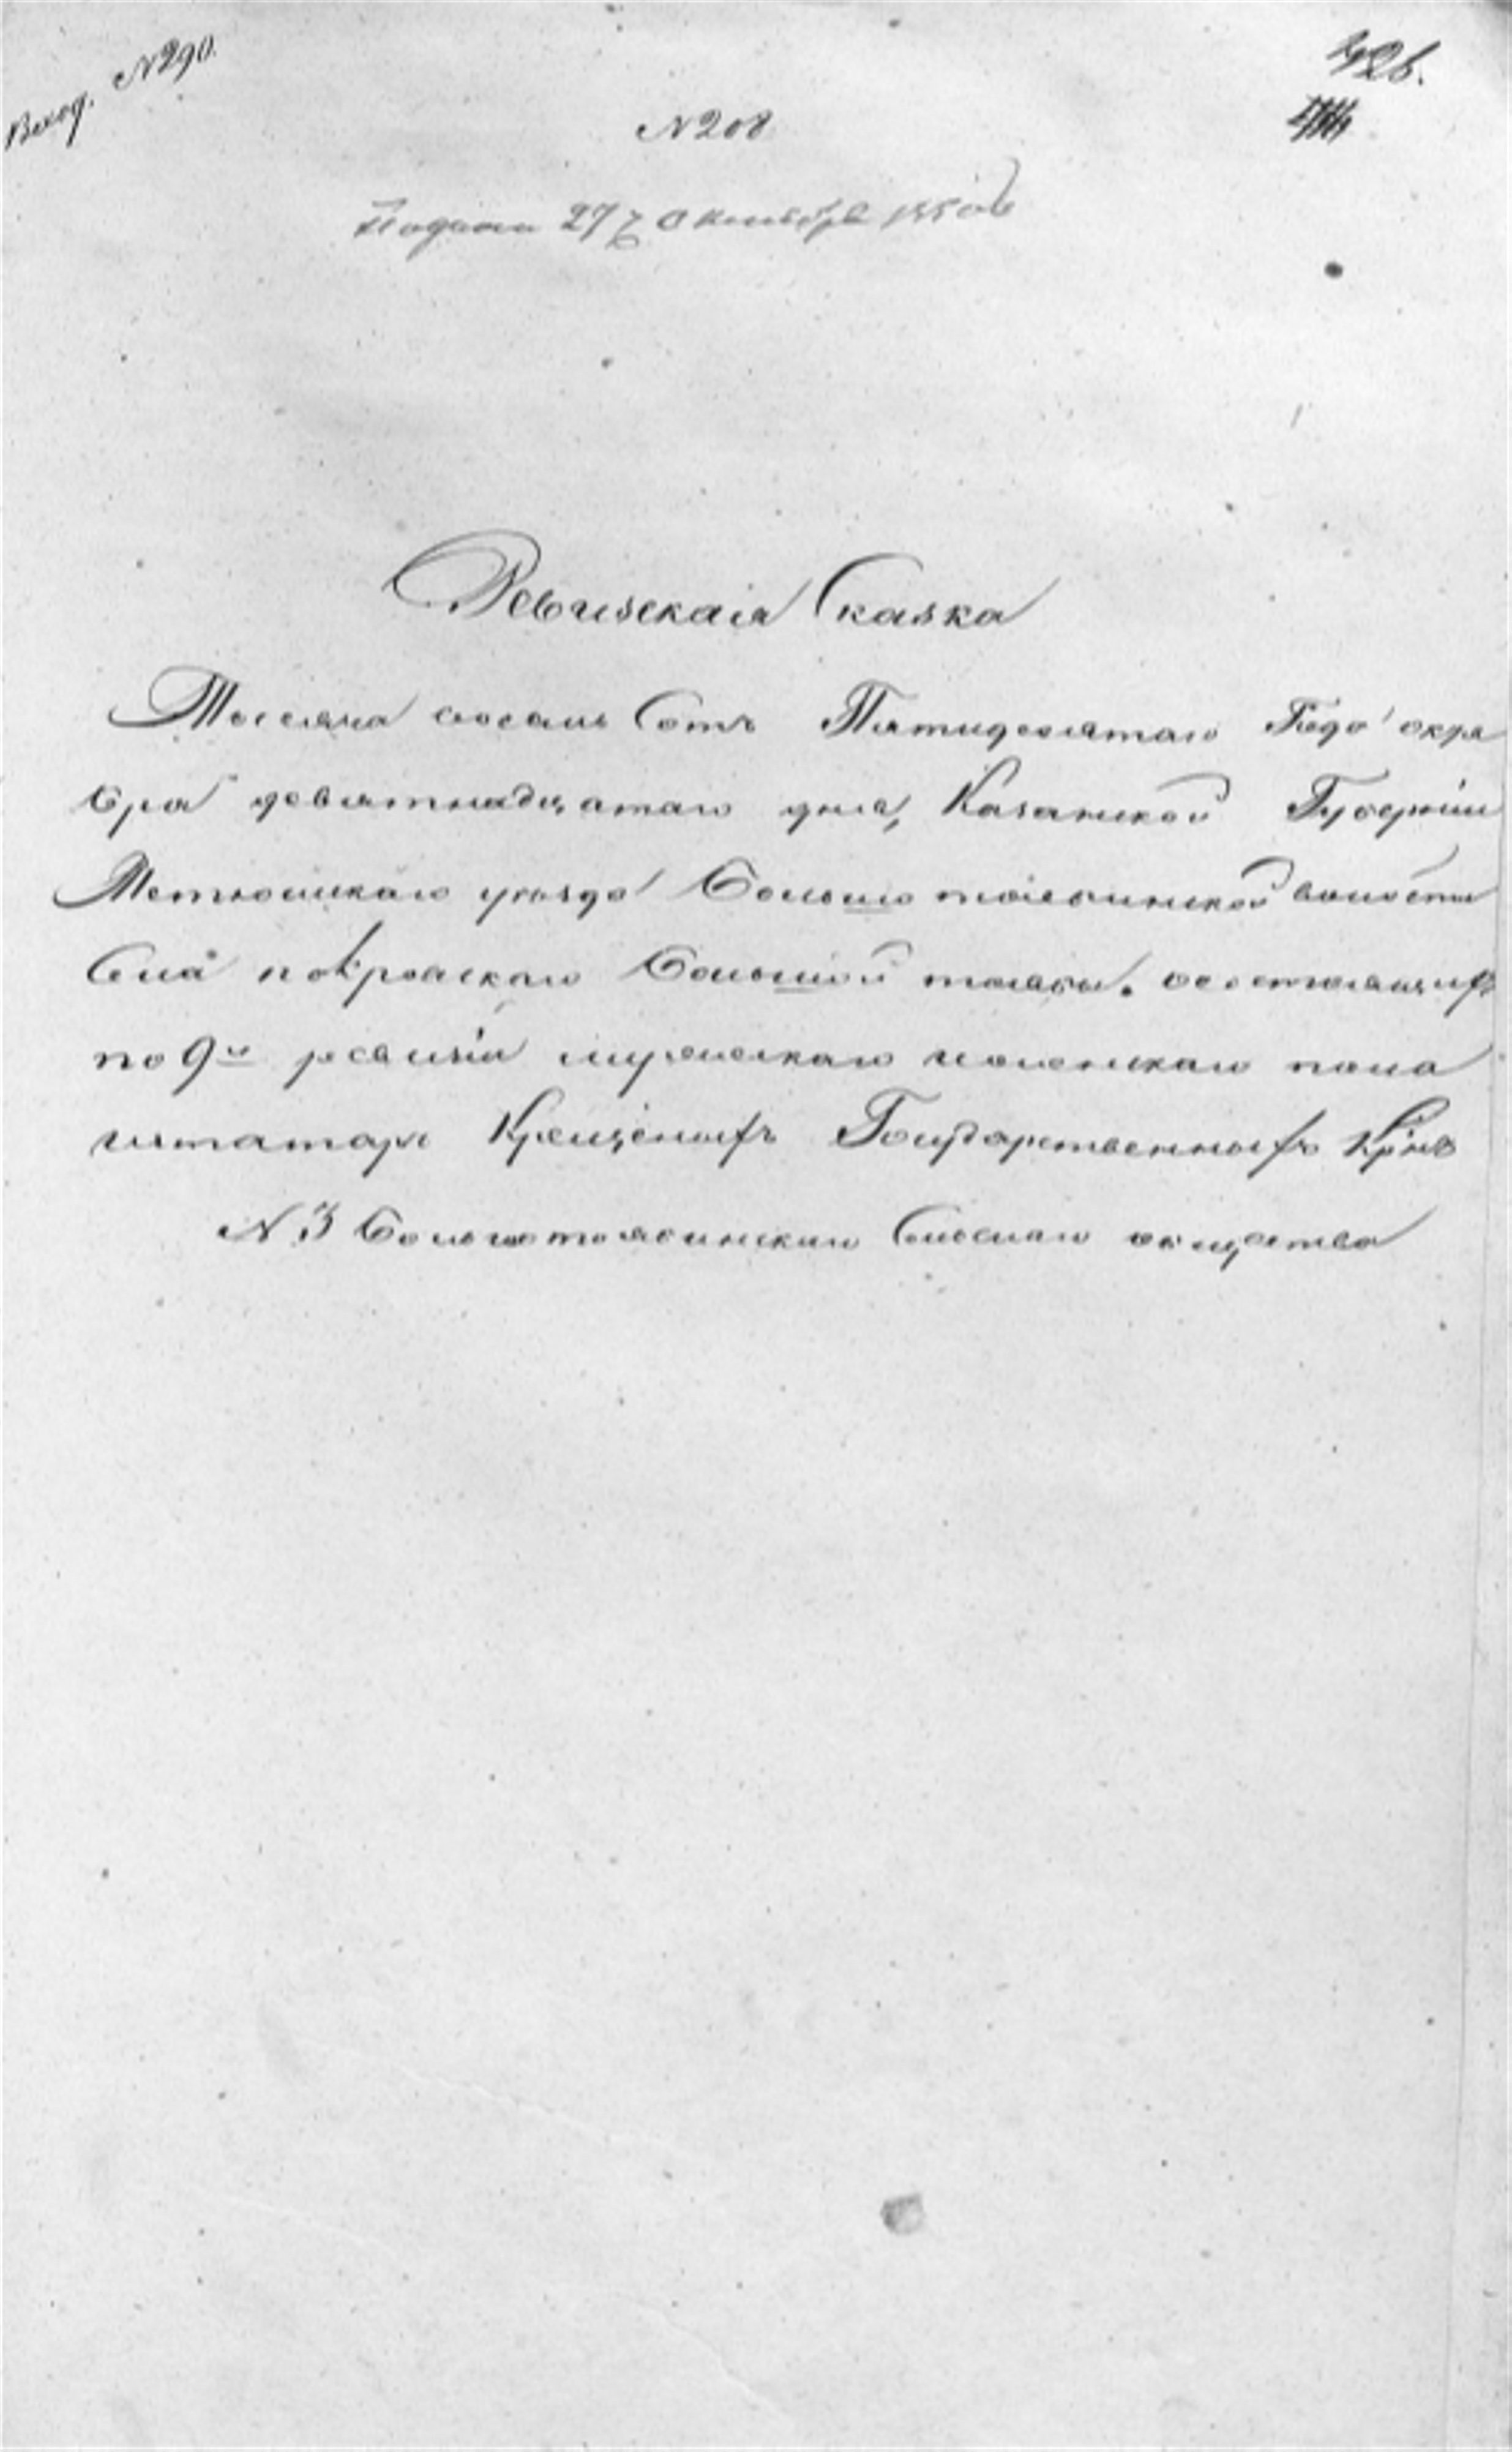 Вход. №290.
426.
№208
Подана 27 Октября 1850
Ревизская Сказка
Тысяча восемь Сотъ Пятидесятаго Года октя
бра девятнадцатаго дня, Казанской Губерніи
Тетюшскаго уезда Большо тоябинской волости
Села покровскаго Большой тоябы. состоящихъ
по 9й ревизіи мужескаго и женскаго пола
изтатаръ Крещеныхъ Государственныхъ Крнъ
№3 Большетоябинскаго Сельскаго общества